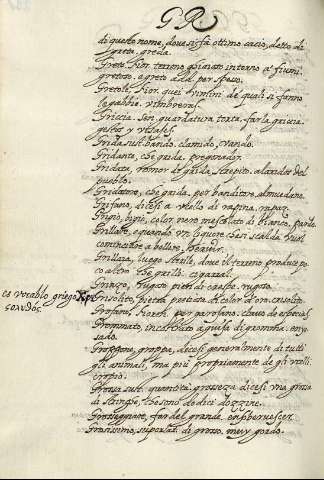 G R
di questo nome, dove si fà ottimo cacio, detto di
greta. greda.
Greto. Fior. terreno ghiarato intorno a' fiumi.
gretoso. agreto add. per spesso.
Gretole. Fior. quei vimini de' quali si fanno
le gabbie. vimbreras.
Griccia. Sen. guardatura torta. far la griccia
gestos y visages.
Grida sust. bando. clamido, vando.
Gridante, che grida. pregonador.
Gridata, romor di grida, strepito. alaridos del
pueblo.
Gridatore, che grida. per banditore, almuedano.
Grifano, dicesi a uccello di rapina, rapaz.
Grigio, bigio, color nero mescolato di bianco, pardo.
Grillare, è quando un liquore che si scalda vuol
cominciare a bollire,
Grillaia, luogo sterile, dove il terreno produce po
co altro che grilli. cigarral.
Grinzo, rugoso pien di crespe. rugoso.
es vocablo griego
Grisolito, pietra preziosa di color d'oro. crisolito.
Grofano, per garofano. clavo de especias.
Grommato, incrostato a guisa di gromma. en
sado.
Groppone, groppa, dicesi generalmente di tutti
gli animali, ma più propriamente de gli uccelli
Grossa sust. quantità, grossezza dicesi una grossa
di stringhe, che sono dodici dozzine.
Grosseggiare, far del grande, ensobervescer.
Grossissimo, superlat. di grosso. muy gordo.